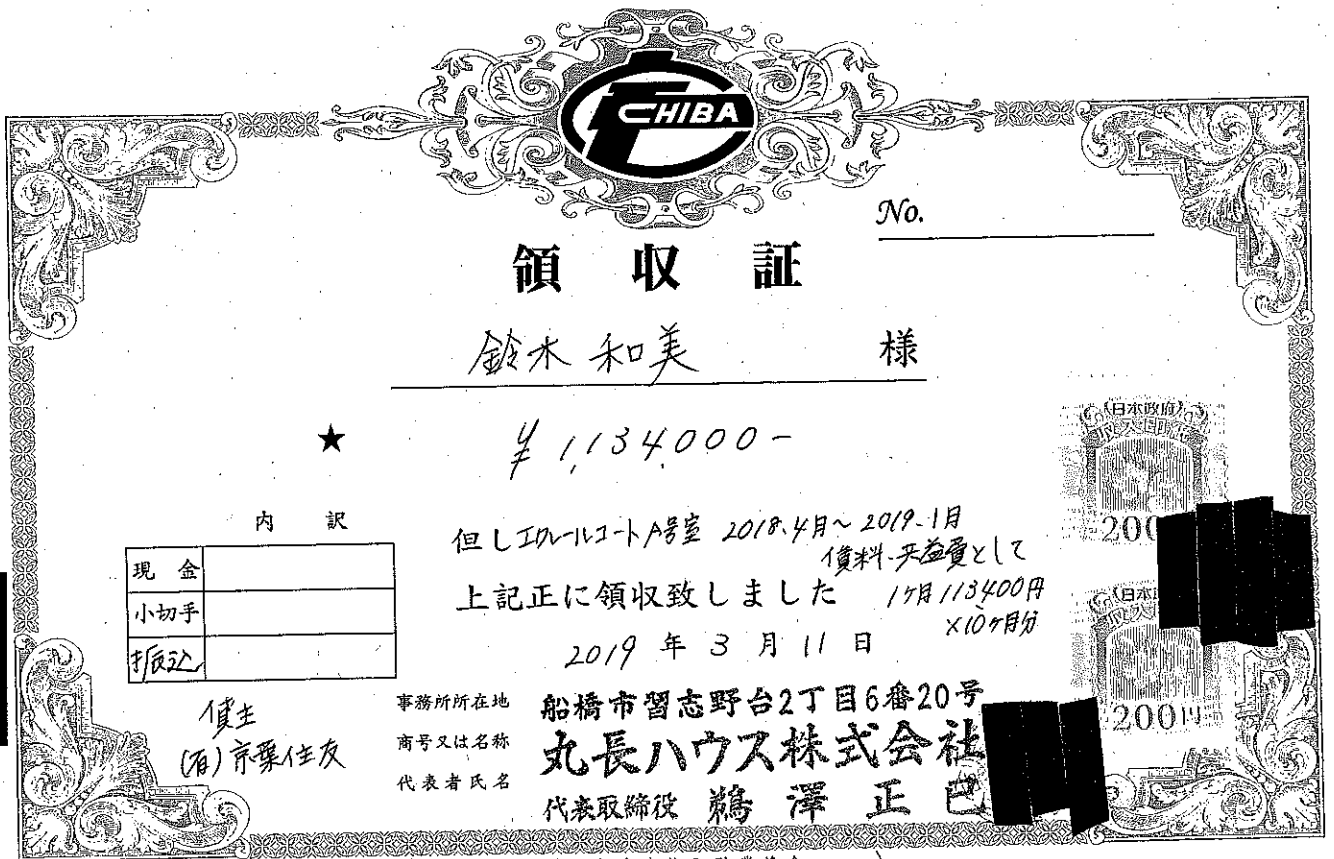 CHIBA
No.
領収証
鈴木 和美 様
★
¥1,134,000-
内訳
但し エクレールコート A号室 2018.4月~2019.1月
賃料・共益費として
現金
上記正に領収致しました
1ヶ月113400円
×10ヶ月分
小切手
振込
2019年3月11日
貸主
(有)京葉住友
事務所所在地 船橋市習志野台2丁目6番20号
商号又は名称 丸長ハウス株式会社
代表者氏名 代表取締役 鵜澤正巳
日本政府
収入印紙
200
日本
200円